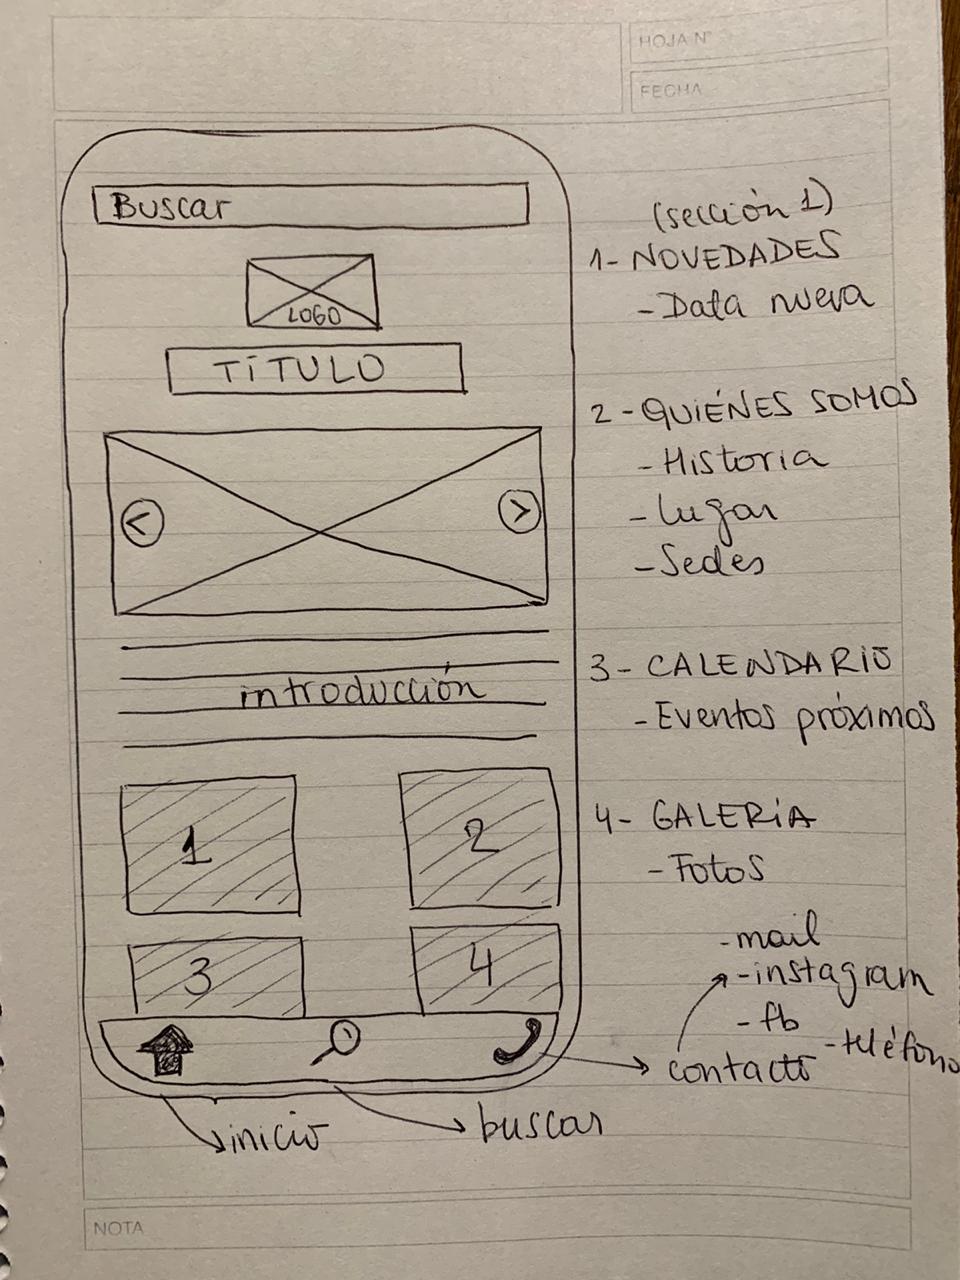 HOJA N°
FECHA
Buscar
LOGO
TÍTULO
<
>
introducción
1
2
3
4
inicio
buscar
(sección 1)
1- NOVEDADES
- Data nueva
2- QUIÉNES SOMOS
- Historia
- Lugar
- Sedes
3- CALENDARIO
- Eventos próximos
4- GALERÍA
- Fotos
- mail
- instagram
- fb
- teléfono
contacto
NOTA